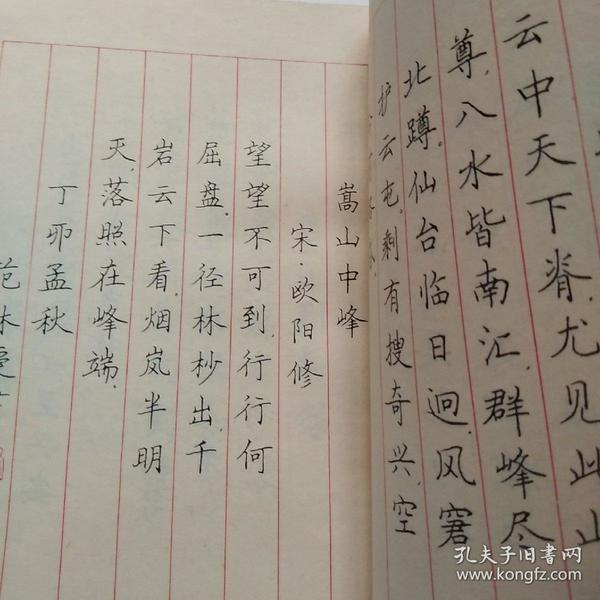 云中天下脊，尤见此山
尊，八水皆南汇，群峰尽
北蹲，仙台临日迥，风窘
护云屯，剩有搜奇兴，空
嵩山中峰
宋·欧阳修
望望不可到，行行何
屈盘，一径林杪出，千
岩云下看，烟岚半明
灭，落照在峰端。
丁卯孟秋
范林
孔夫子旧书网
www.kongfz.com